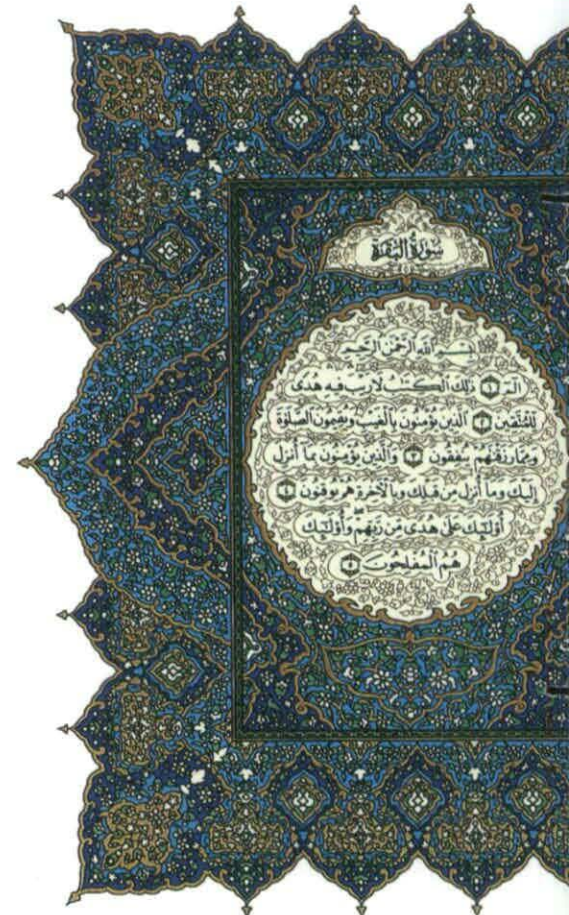 سُورَةُ الْبَقَرَةِ
بِسْمِ اللَّهِ الرَّحْمَٰنِ الرَّحِيمِ
الٓمٓ ۝١ ذَٰلِكَ الْكِتَابُ لَا رَيْبَ فِيهِ هُدًى
لِلْمُتَّقِينَ ۝٢ الَّذِينَ يُؤْمِنُونَ بِالْغَيْبِ وَيُقِيمُونَ الصَّلَوٰةَ
وَمِمَّا رَزَقْنَٰهُمْ يُنفِقُونَ ۝٣ وَالَّذِينَ يُؤْمِنُونَ بِمَا أُنزِلَ
إِلَيْكَ وَمَا أُنزِلَ مِن قَبْلِكَ وَبِالْآخِرَةِ هُمْ يُوقِنُونَ ۝٤
أُوْلَٰئِكَ عَلَىٰ هُدًى مِّن رَّبِّهِمْ وَأُوْلَٰئِكَ
هُمُ الْمُفْلِحُونَ ۝٥